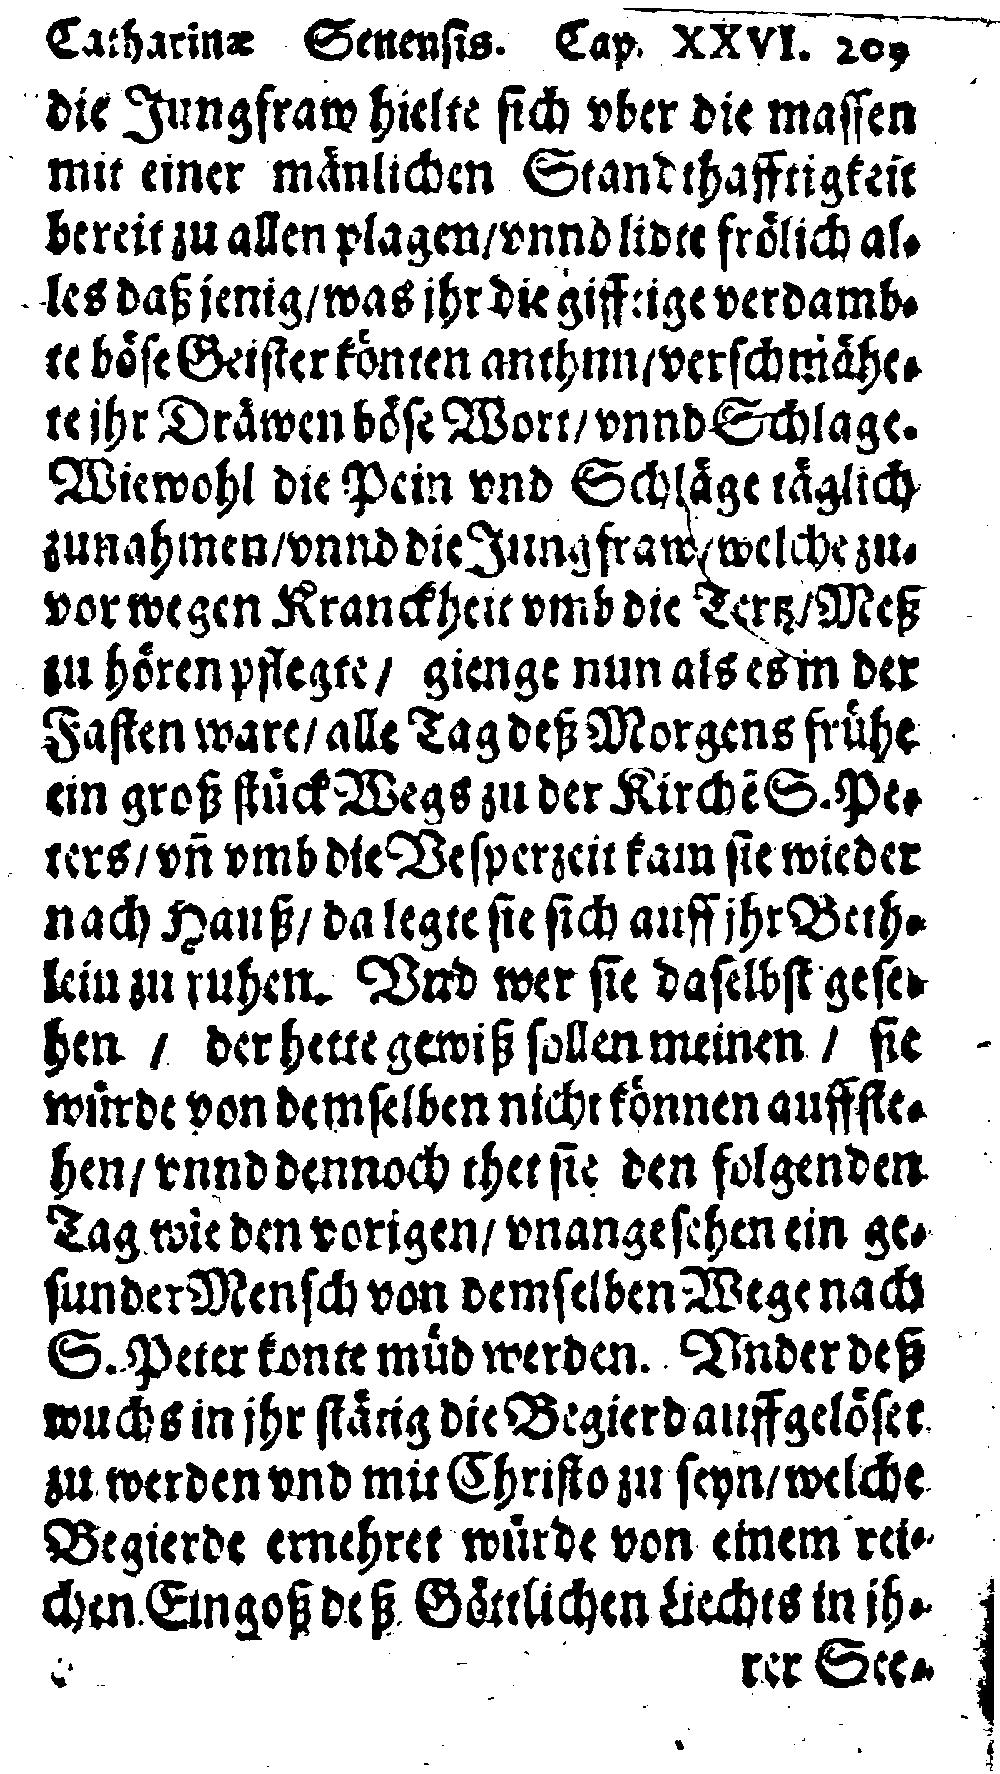 Catharinæ Senensis. Cap. XXVI. 209
die Jungfraw hielte sich vber die massen
mit einer mänlichen Standthafftigkeit
bereit zu allen plagen/vnnd lidte frölich al-
les daß jenig/was jhr die gifftige verdamb-
te böse Geister könten anthun/verschmähe-
te jhr Dräwen böse Wort/vnnd Schlage.
Wiewohl die Pein vnd Schläge täglich
zunahmen/vnnd die Jungfraw/welche zu-
vor wegen Kranckheit vmb die Tertz/Meß
zu hören pflegte/ gienge nun als es in der
Fasten ware/alle Tag deß Morgens frühe
ein groß stück Wegs zu der Kirchē S. Pe-
ters/vñ vmb die Vesperzeit kam sie wieder
nach Hauß/da legte sie sich auff jhr Beth-
lein zu ruhen. Vnd wer sie daselbst gese-
hen / der hette gewiß sollen meinen / sie
würde von demselben nicht können auffste-
hen/vnnd dennoch thet sie den folgenden
Tag wie den vorigen/vnangesehen ein ge-
sunder Mensch von demselben Wege nach
S. Peter konte müd werden. Vnder deß
wuchs in jhr stätig die Begierd auffgelöset
zu werden vnd mit Christo zu seyn/welche
Begierde ernehret würde von einem rei-
chen Eingoß deß Göttlichen Liechts in jh-
rer See-